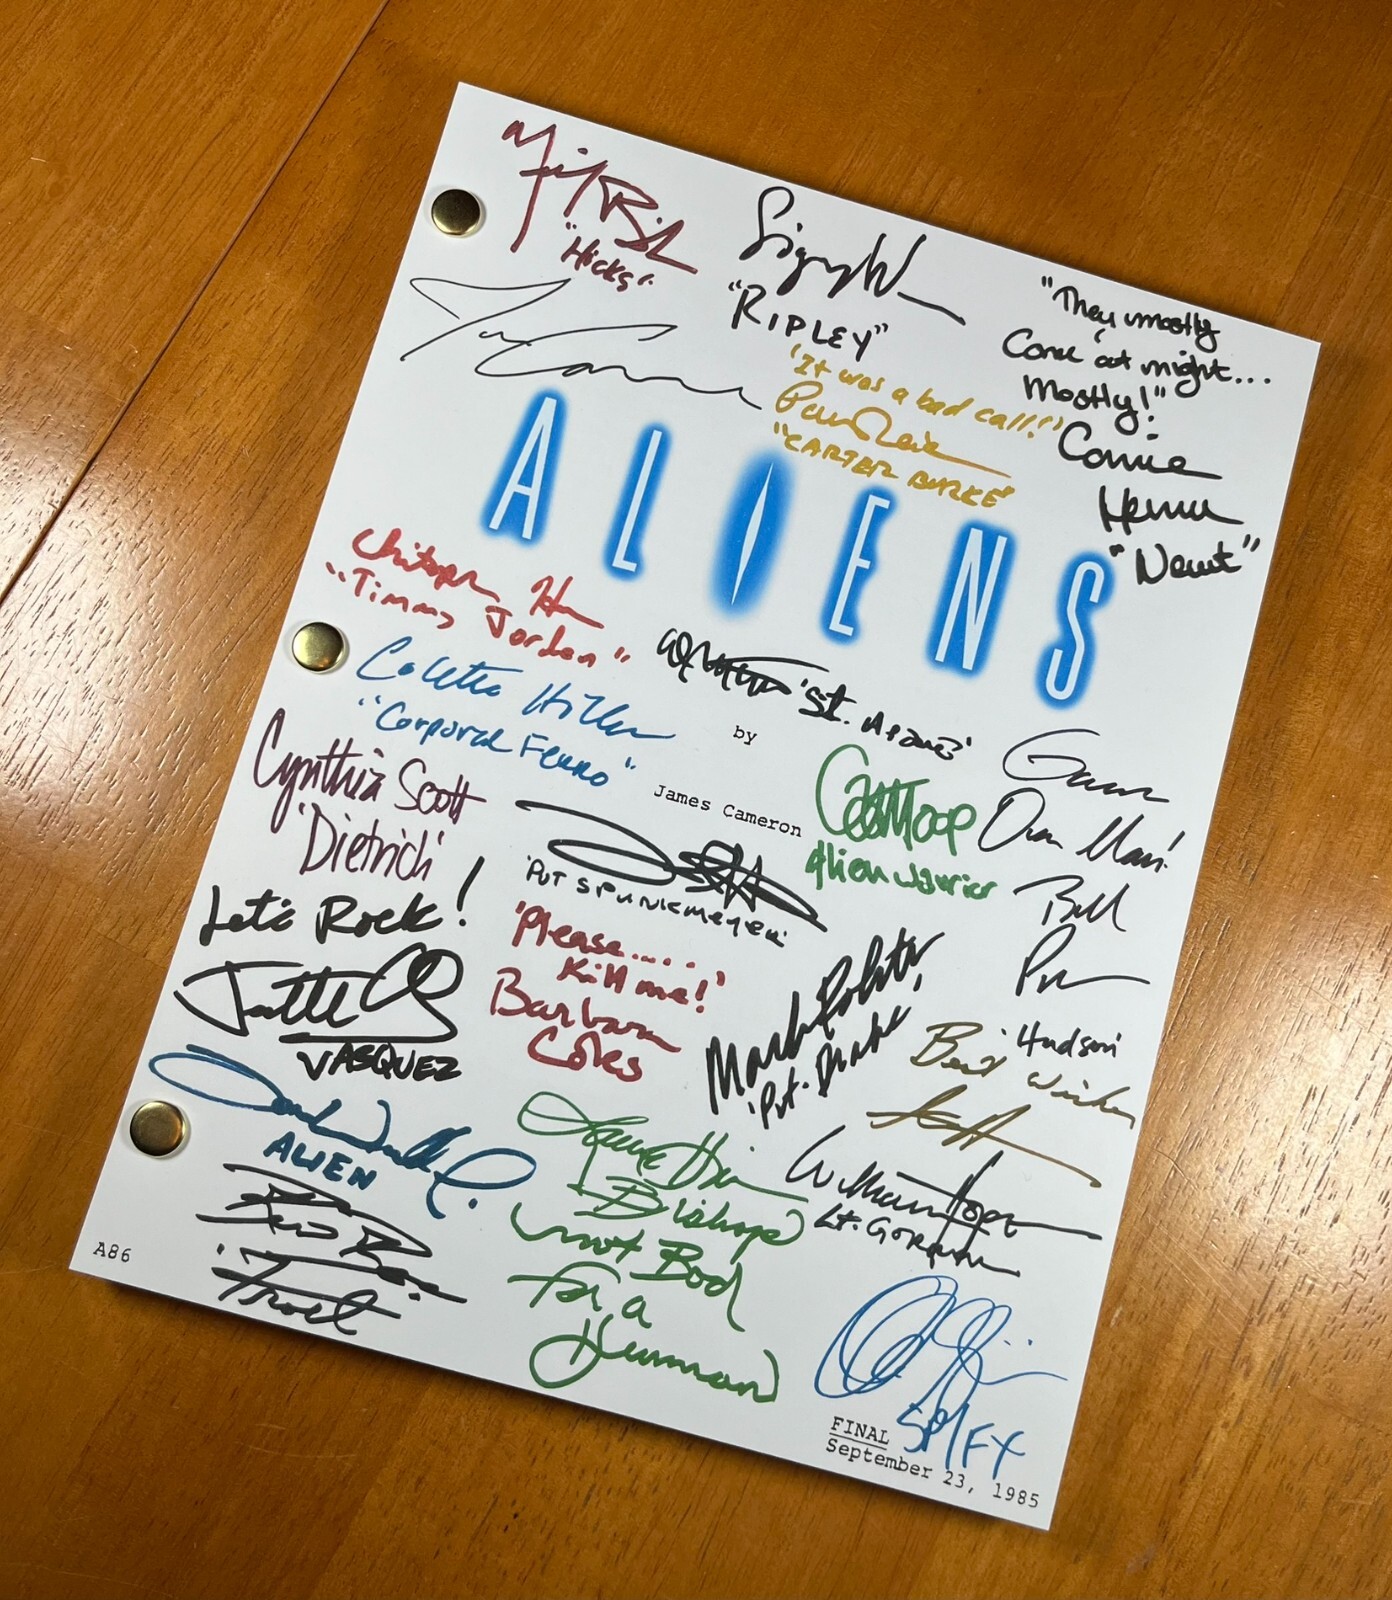 "Hicks"
Sigourney W
"RIPLEY"
"They mostly
Come at night...
Mostly!"
Carrie
Henn
"Newt"
'It was a bad call!'
Paul Reiser
"CARTER BURKE"
ALIENS
"Timmy Jorden"
Colette Hiller
"Corporal Ferro"
by
James Cameron
Cynthia Scott
'Dietrich'
Alien Warrior
'PVT SPUNKMEYER'
Bill
'Hudson'
Let's Rock!
VASQUEZ
'Please.....
Kill me!'
Barbara
Coles
Mark Rolston
'Pvt. Drake'
Best Wishes
ALIEN
Lance Hen
Bishop
not Bad
for a
Human
William Hope
Lt. Gorman
'Frost'
A86
SP/FX
FINAL
September 23, 1985